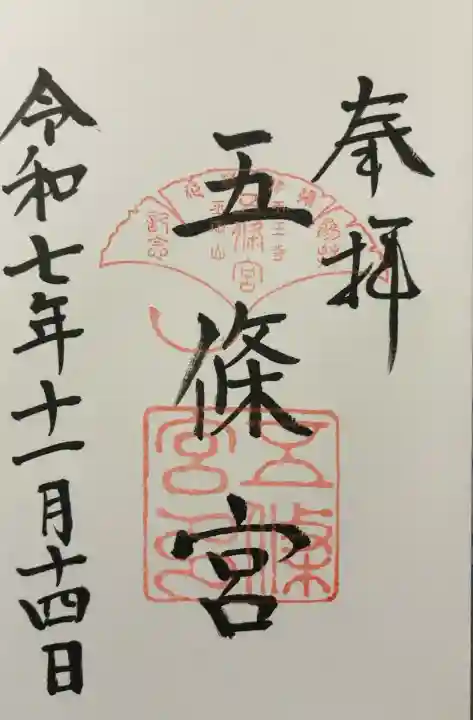 奉拝
五條宮
令和七年十一月十四日
五條
宮印
五條宮
記念